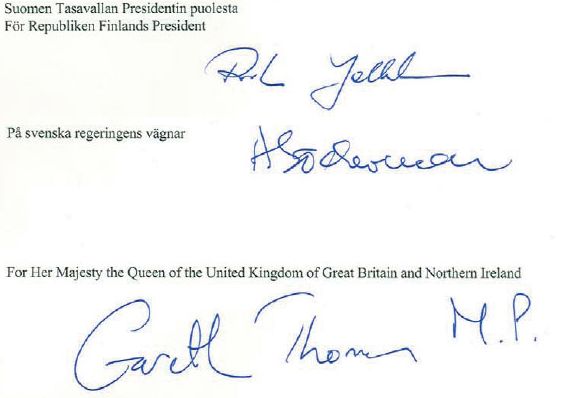 Suomen Tasavallan Presidentin puolesta
För Republiken Finlands President
På svenska regeringens vägnar
For Her Majesty the Queen of the United Kingdom of Great Britain and Northern Ireland
Gareth Thomas M.P.